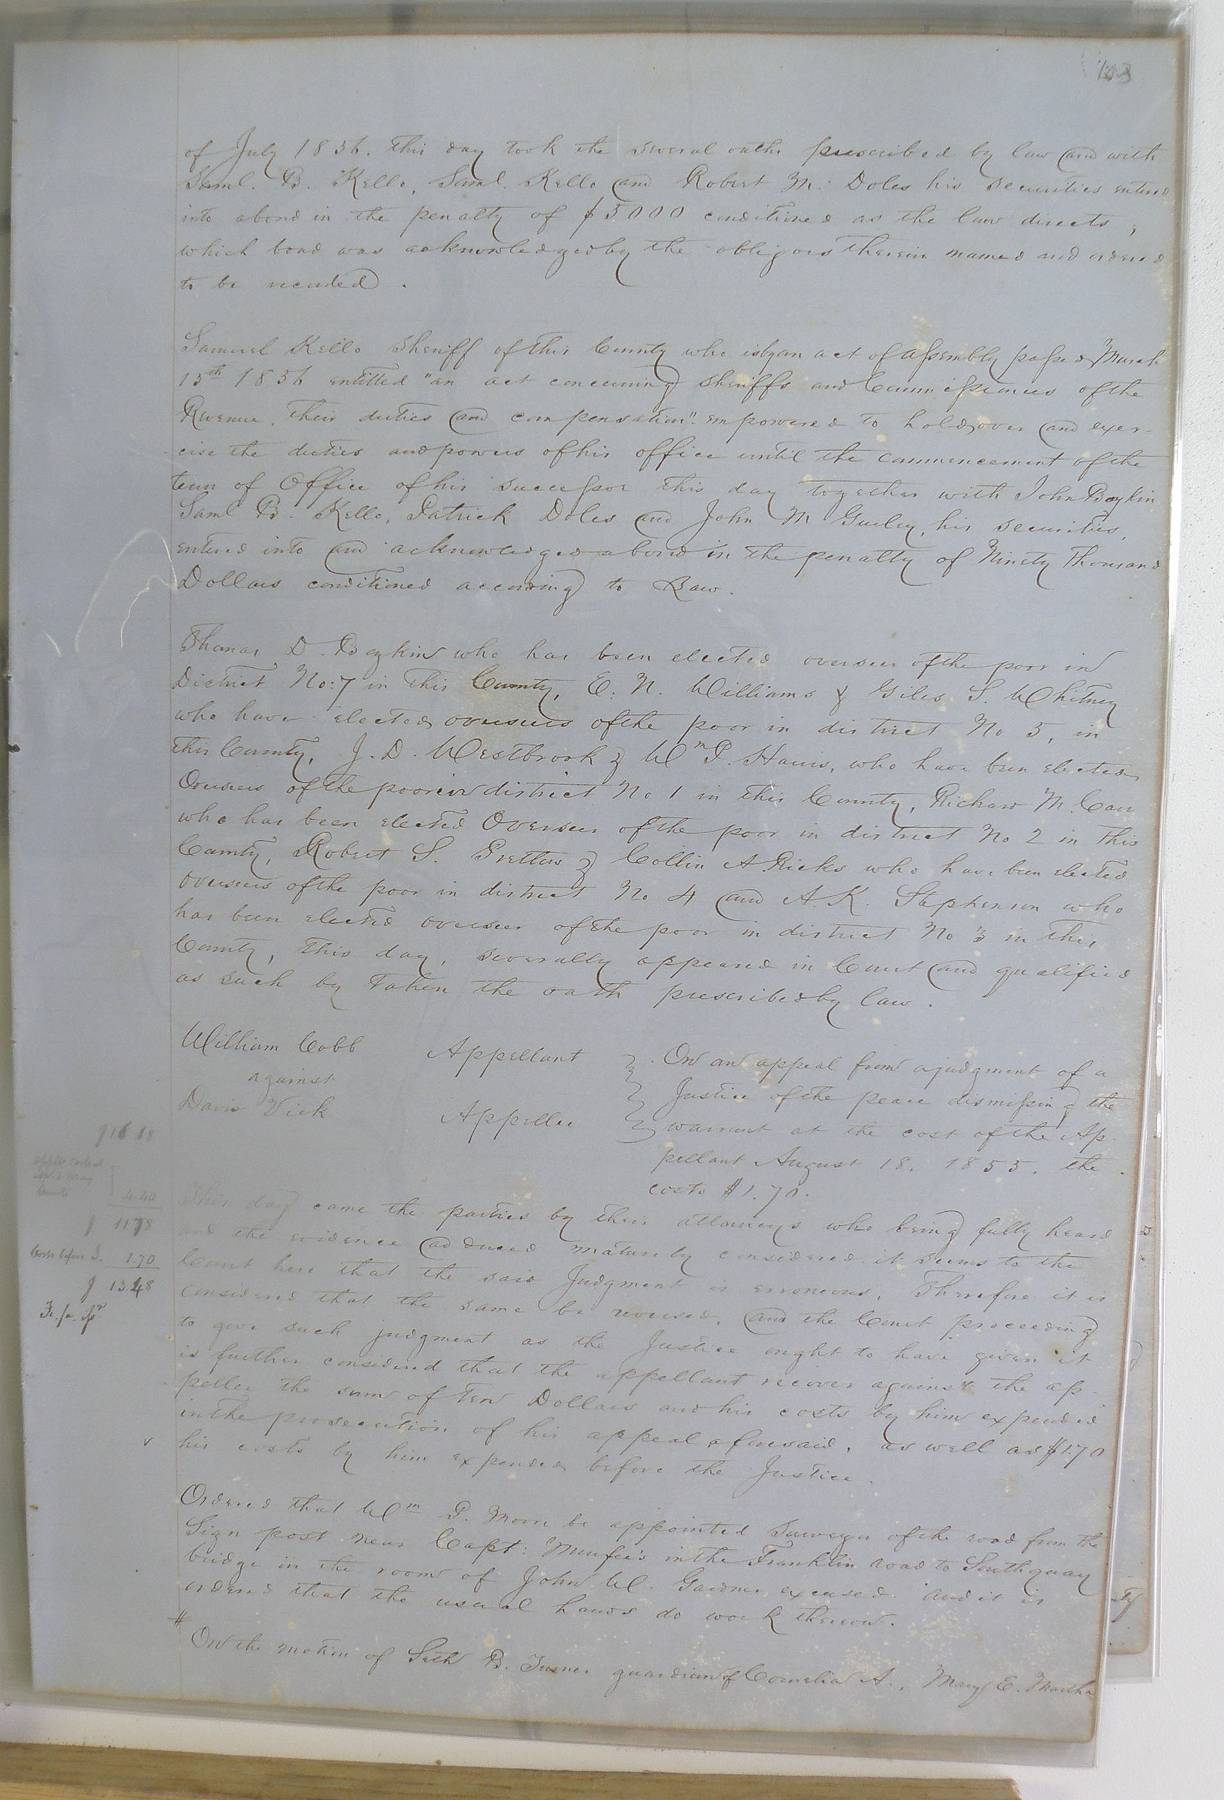 103
of July 1856. this day took the several oaths prescribed by law and with
Saml. B. Kello, Saml. Kello and Robert M. Doles his securities entered
into a bond in the penalty of $5000 conditioned as the law directs,
which bond was acknowledged by the obligors therein named and ordered
to be recorded.
Samuel Kello Sheriff of this County who is by an act of Assembly passed March
15th 1856 entitled "an act concerning Sheriffs and Commissioners of the
Revenue, their duties and compensation" empowered to hold over and exer-
cise the duties and powers of his office until the commencement of the
term of Office of his successor this day together with John Boykin
Saml B. Kello, Patrick Doles and John M Gurley, his securities,
entered into and acknowledged a bond in the penalty of Ninety Thousand
Dollars conditioned according to Law.
Thomas D. Boykin who has been elected overseer of the poor in
District No: 7 in this County, E. N. Williams & Giles S. Whitney
who have elected overseers of the poor in district No 5, in
this County, J. D. Westbrook & Wm P. Harris, who have been elected
Overseers of the poor in district No 1 in this County, Richard M. Carr
who has been elected Overseer of the poor in district No 2 in this
County, Robert S. Pretlow & Collin A Ricks who have been elected
overseers of the poor in district No 4 and A. K. Stephenson who
has been elected overseer of the poor in district No 3 in this
County, this day, severally appeared in Court and qualified
as such by taken the oath prescribed by law.
William Cobb Appellant
against
Davis Vick Appellee
On an appeal from a judgment of a
Justice of the peace dismissing the
warrant at the cost of the Ap-
pellant August 18, 1855. the
costs $1.70.
This day came the parties by their attorneys who being fully heard
and the evidence adduced maturely considered it seems to the
Court here that the said Judgment is erroneous, Therefore it is
considered that the same be reversed, and the Court proceeding
to give such judgment as the Justice ought to have given it
is further considered that the appellant recover against the ap-
pellee the sum of ten Dollars and his costs by him expended
in the prosecution of his appeal aforesaid, as well as $1.70
his costs by him expended before the Justice.
4.40
11 78
Costs before J. 1.70
13.48
Fi. fa.
Ordered that Wm P. Moore be appointed Surveyor of the road from the
Sign post near Capt: Murfee's in the Franklin road to Southquay
bridge in the room of John W. Gardner excused and it is
ordered that the usual hands do work thereon.
#
On the motion of Seth B. Turner guardian of Cornelia A., Mary E. Martha